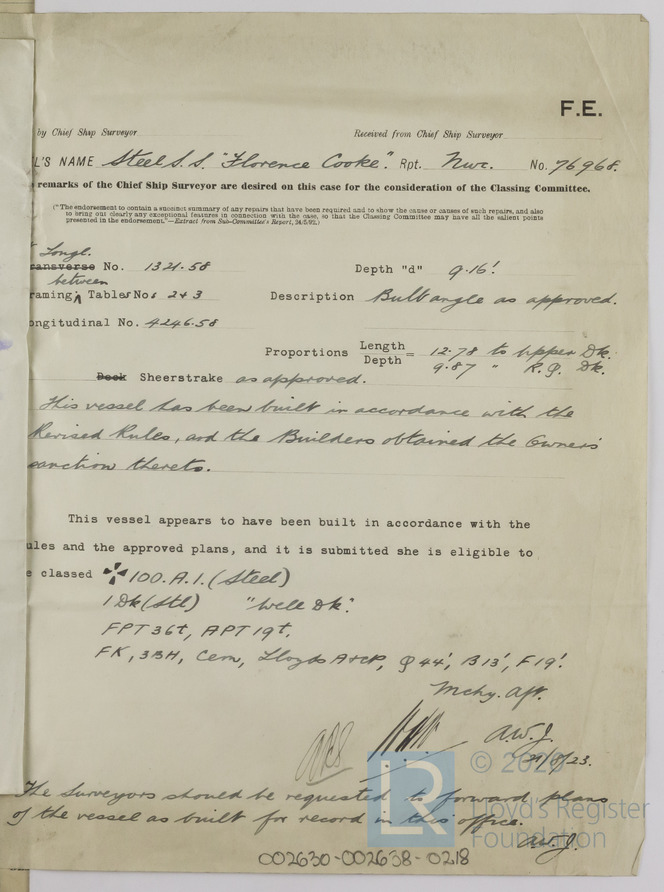 F.E.
by Chief Ship Surveyor Received from Chief Ship Surveyor
L'S NAME Steel S.S. "Florence Cooke". Rpt. Nwc. No. 76968.
remarks of the Chief Ship Surveyor are desired on this case for the consideration of the Classing Committee.
("The endorsement to contain a succinct summary of any repairs that have been required and to show the cause or causes of such repairs, and also
to bring out clearly any exceptional features in connection with the case, so that the Classing Committee may have all the salient points
presented in the endorsement."—Extract from Sub-Committee's Report, 24/5/92.)
Longl.
ransverse No. 1321.58 Depth "d" 9.16'.
between
raming, Tables Nos 2+3 Description Bulb angle as approved.
ongitudinal No. 4246.58
Proportions Length/Depth = 12.78 to Upper Dk.
9.87 " R.Q. Dk.
Deck Sheerstrake as approved.
This vessel has been built in accordance with the
Revised Rules, and the Builders obtained the Owners'
sanction thereto.
This vessel appears to have been built in accordance with the
ules and the approved plans, and it is submitted she is eligible to
e classed ✠ 100.A.1. (Steel)
1 Dk (Stl) "Well Dk".
FPT 36t, APT 19t.
FK, 3BH, Cem, Lloyds A&CP, Q 44', B 13', F 19'.
Mchy. Aft.
A.W.J.
21/8/23.
The Surveyors should be requested to forward plans
of the vessel as built for record in this office.
A.W.J.
© 202
LR
Lloyd's Register
Foundation
002630-002638-0218